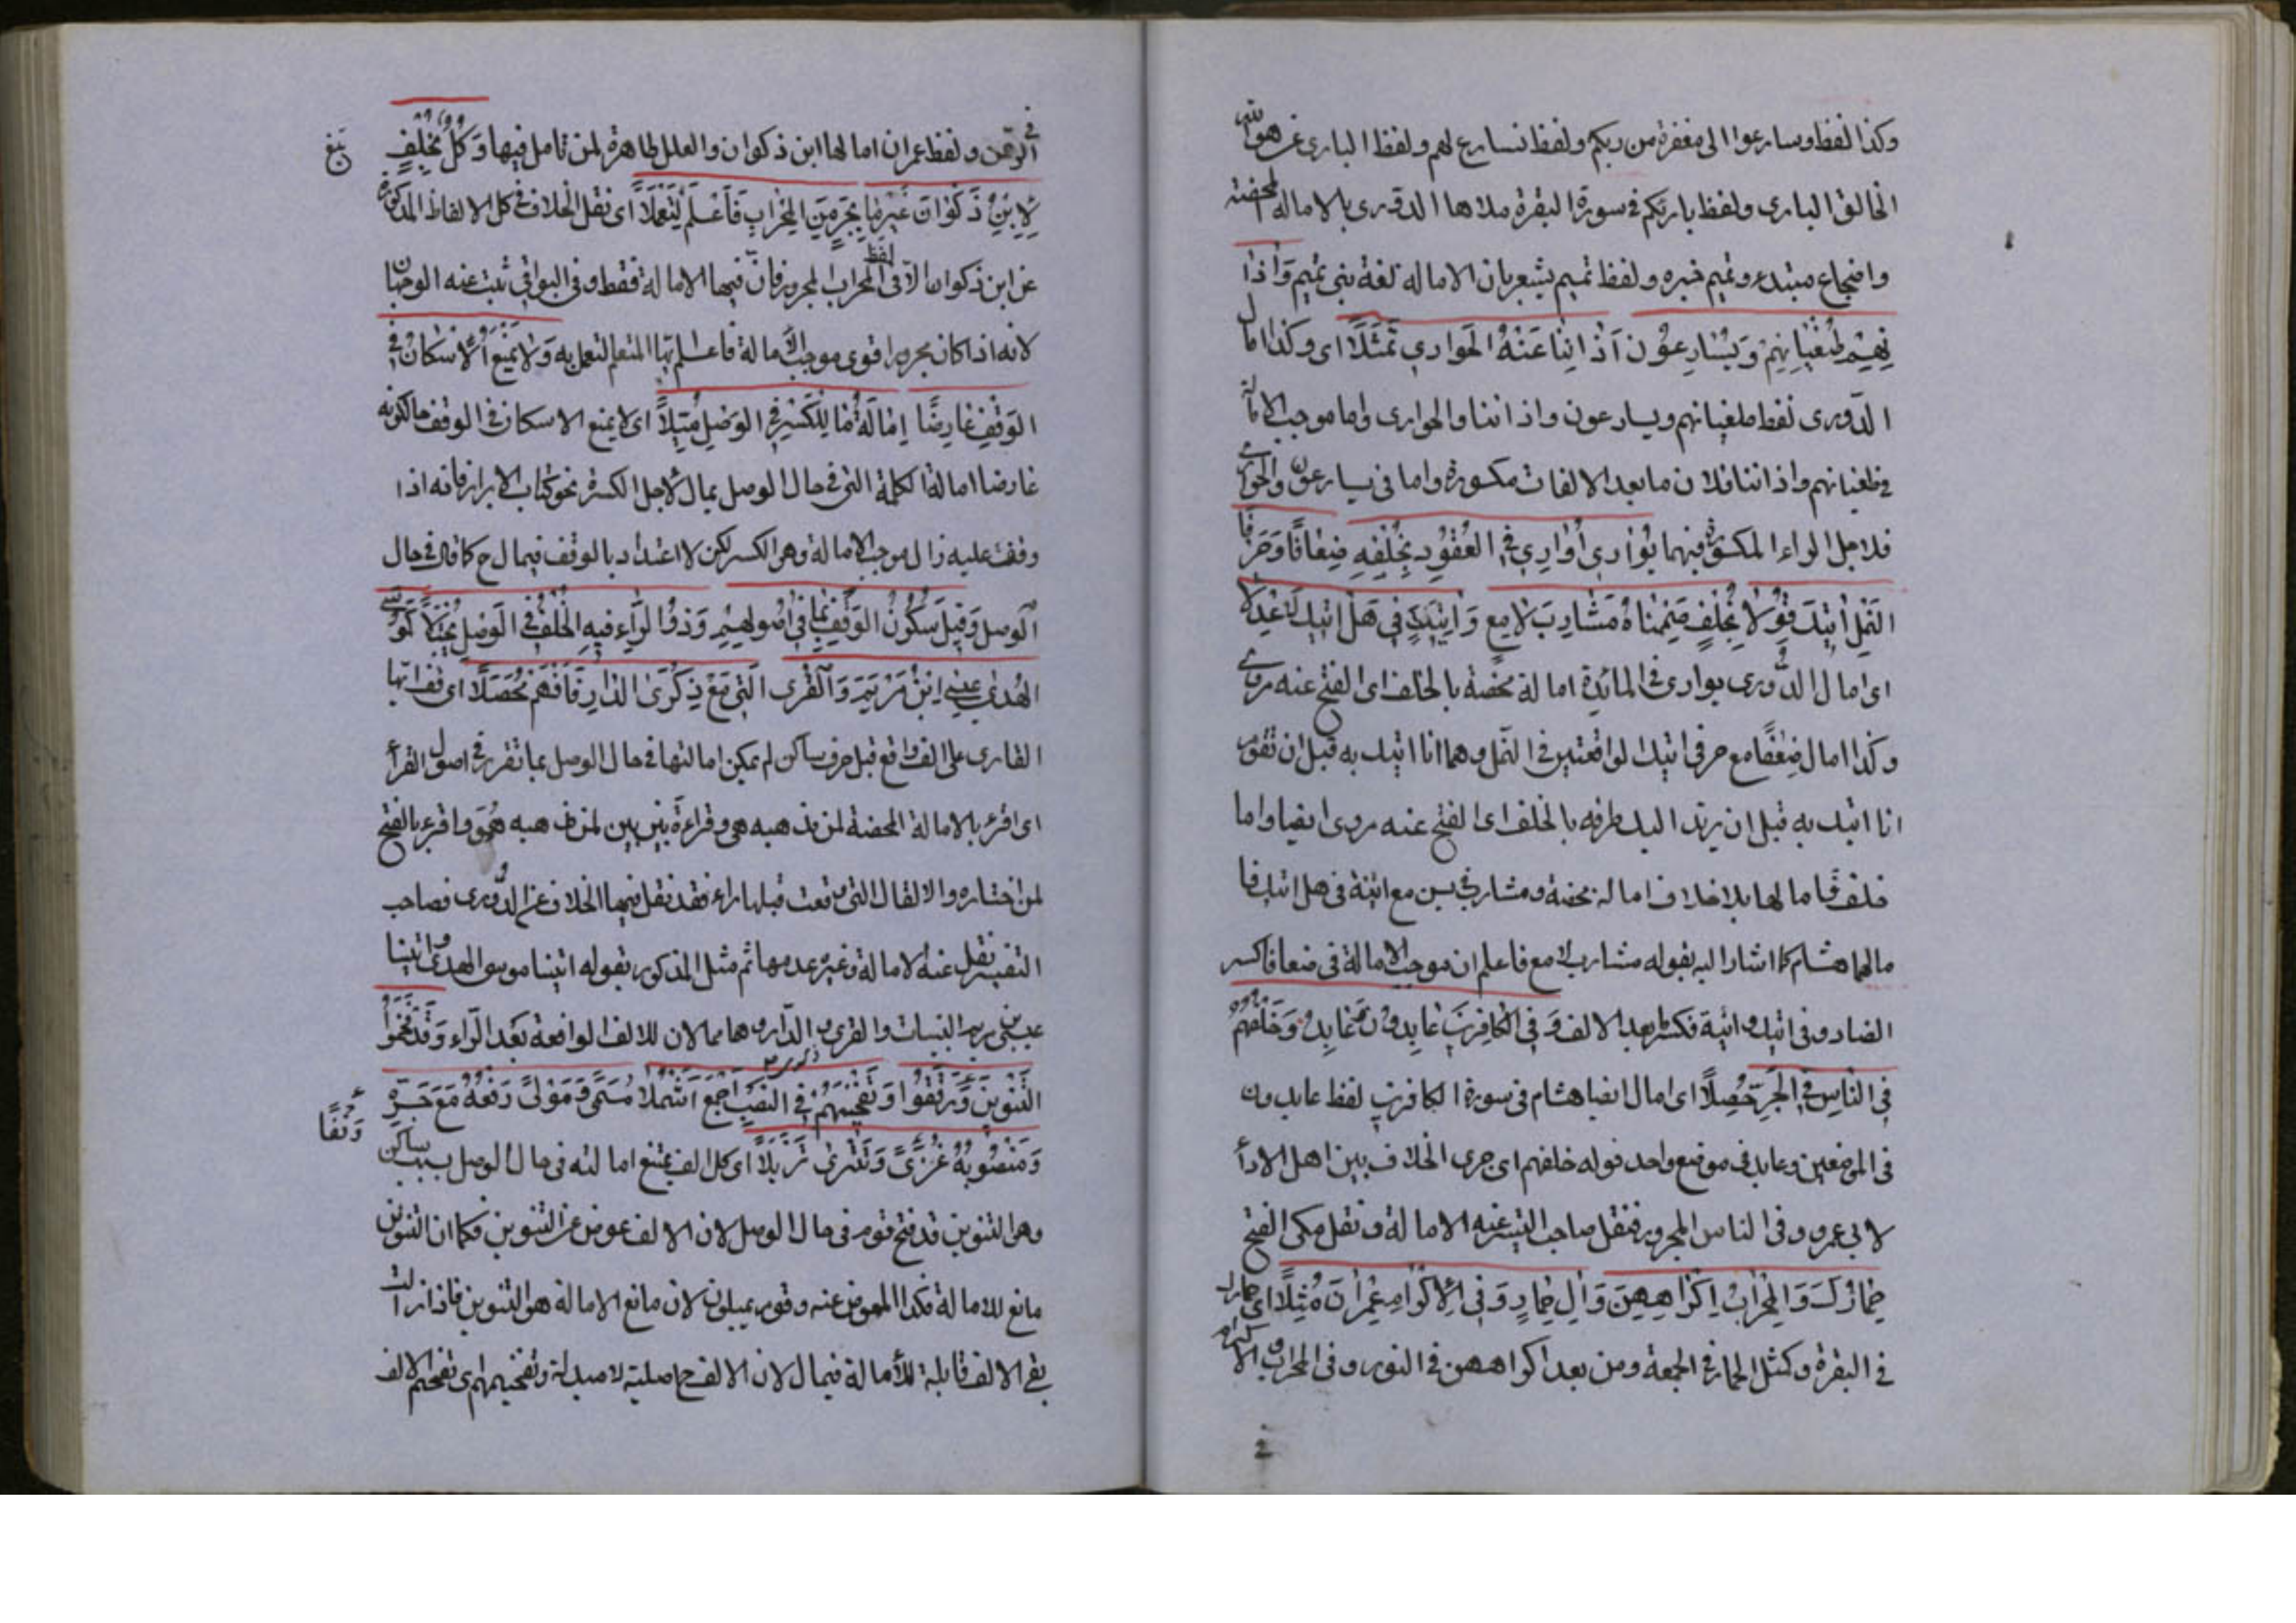 وكذا لفظ وسارعوا الى مغفرة من ربكم ولفظ نسارع لهم ولفظ البارى هو الله
الخالق البارى ولفظ بارئكم فى سورة البقرة الدورى بالامالة المحضة
واضجاع مبتدء وتميم خبره ولفظ تميم يشعر بان الامالة لغة بنى تميم وَآذَا
نِهِمْ طُغْيَانِهِمْ وَيُسَارِعُونَ آذَانِنَا عَنْهُ الْجَوَارِي تَمَثَّلَا اى وكذا امال
الدّورى لفظ طغيانهم ويسارعون واذاننا والجوارى واما موجب الامالة
فى طغيانهم واذاننا فلان ما بعد الالفات مكسورة واما فى يسارعون والجوارى
فلاجل الراء المكسورة فيهما يُوَارِي أُوَارِي فِي الْعُقُودِ بِخُلْفِهِ ضِعَافًا وَحَرْفَا
النَّمْلِ آتِيكَ قَوِّلَا بِخُلْفٍ ضَمَمْنَاهُ مَشَارِبُ لَامِعٌ وَآنِيَةٍ فِي هَلْ أَتَيكَ لِأَعْدَلَا
اى امال الدُّورى يوارى فى المائدة امالة محضة بالخلف اى الفتح عنه مروى
وكذا امال ضعفًا مع حرفى اتيك الواقعتين فى النمل وهما انا اتيك به قبل ان تقوم
انا اتيك به قبل ان يرتد اليك طرفه بالخلف اى الفتح عنه مروى ايضا واما
خلف فامالها بلا خلاف امالة محضة ومشارب فى يس مع انية فى هل اتيك فا
مالهما هشام كما اشار اليه بقوله مشارب لامع فاعلم ان موجب الامالة فى ضعافا كسر
الضاد وفى اتيك وانية فكسر ما بعد الالف وَفِي الْكَافِرِينَ عَابِدُونَ وَعَابِدٌ وَخُلْفُهُمْ
فِي النَّاسِ فِي الْجَرِّ حُصِّلَا اى امال ايضا هشام فى سورة الكافرين لفظ عابدون
فى الموضعين وعابد فى موضع واحد قوله خلفهم اى جرى الخلاف بين اهل الاداء
لابى عمرو وفى الناس المجرور فنقل صاحب التيسير عنه الامالة ونقل مكى الفتح
حِمَارِكَ وَالْمِحْرَابِ إِكْرَاهِهِنَّ وَالْحِمَارِ وَفِي الْإِكْرَامِ عِمْرَانَ مُثِّلَا اى حمارك
فى البقرة وكمثل الحمار فى الجمعة ومن بعد اكراههن فى النور وفى المحراب والاكرام
فى الرحمن ولفظ عمران امالها ابن ذكوان والعلل ظاهرة لمن تامل فيها وَكُلٌّ بِخُلْفٍ
لِابْنِ ذَكْوَانَ غَيْرَ مَا يُجَرُّ مِنَ الْمِحْرَابِ فَاعْلَمْ لِتَعْمَلَا اى نقل الخلاف فى كل الالفاظ المذكورة
عن ابن ذكوان الا فى لفظ المحراب المجرور فان فيها الامالة فقط وفى البواقى ثبت عنه الوجهان
لانه اذا كان مجرورا قوى موجب الامالة فاعلم ايها المتعلم لتعمل به وَلَا يَمْنَعُ الْإِسْكَانُ فِي
الْوَقْفِ عَارِضًا إِمَالَةَ مَا لِلْكَسْرِ فِي الْوَصْلِ مُيِّلَا اى لا يمنع الاسكان فى الوقف حال كونه
عارضا امالة الكلمة التى فى حال الوصل يمال لاجل الكسرة نحو كتاب الابرار فانه اذا
وقفت عليه زال موجب الامالة وهو الكسر لكن لا اعتداد بالوقف فيمال ح كما قال فى حال
الوصل وَقَبْلَ سُكُونٍ الْوَقْفُ بِمَا فِي أُصُولِهِمْ وَذُو الرَّاءِ فِيهِ الْخُلْفُ فِي الْوَصْلِ يُجْتَلَا كَمُوسَى
الْهُدَى عِيسَى ابْنِ مَرْيَمَ وَالْقُرَى الَّتِي مَعَ ذِكْرَى الدَّارِ فَافْهَمْ مُحَصِّلَا اى قف ايها
القارى على الف واقع قبل حرف ساكن لم يمكن امالتها فى حال الوصل بما تقرر فى اصول القراء
اى اقرء بالامالة المحضة لمن مذهبه هى وقراءة بين بين لمن مذهبه هو واقرء بالفتح
لمن اختاره والالفات التى وقعت قبلها راء فقد نقل فيها الخلاف عن الدورى فصاحب
التيسير نقل عنه الامالة وغيره عدمها ثم مثل المذكور بقوله اتينا موسى الهدى واتينا
عيسى بن مريم البينات والقرى الدار وهما مالان للالف الواقعة بعد الراء وَقَدْ فَخَّمُوا
التَّنْوِينَ وَرَقَّقُوا وَتَفْخِيمُهُمْ فِي النَّصْبِ أَجْمَعُ أَشْمُلَا مُسَمًّى وَمَوْلًى رَفْعُهُ مَعَ جَرِّهِ
وَمَنْصُوبُهُ غُزًّى وَتَتْرَى تَزَيَّلَا اى كل الف يمتنع امالته فى حال الوصل بسبب ساكن
وهو التنوين قد فتح قوم فى حال الوصل لان الالف عوض عن التنوين فكما ان التنوين
مانع للامالة فكذا المعوض عنه وقوم يميلون لان مانع الامالة هو التنوين فاذا زالت
بقى الالف قابلة للامالة فيمال لان الالف ح اصلية لا مبدلة وتفخيمهم اى تفخيم الالف
وَقْفًا